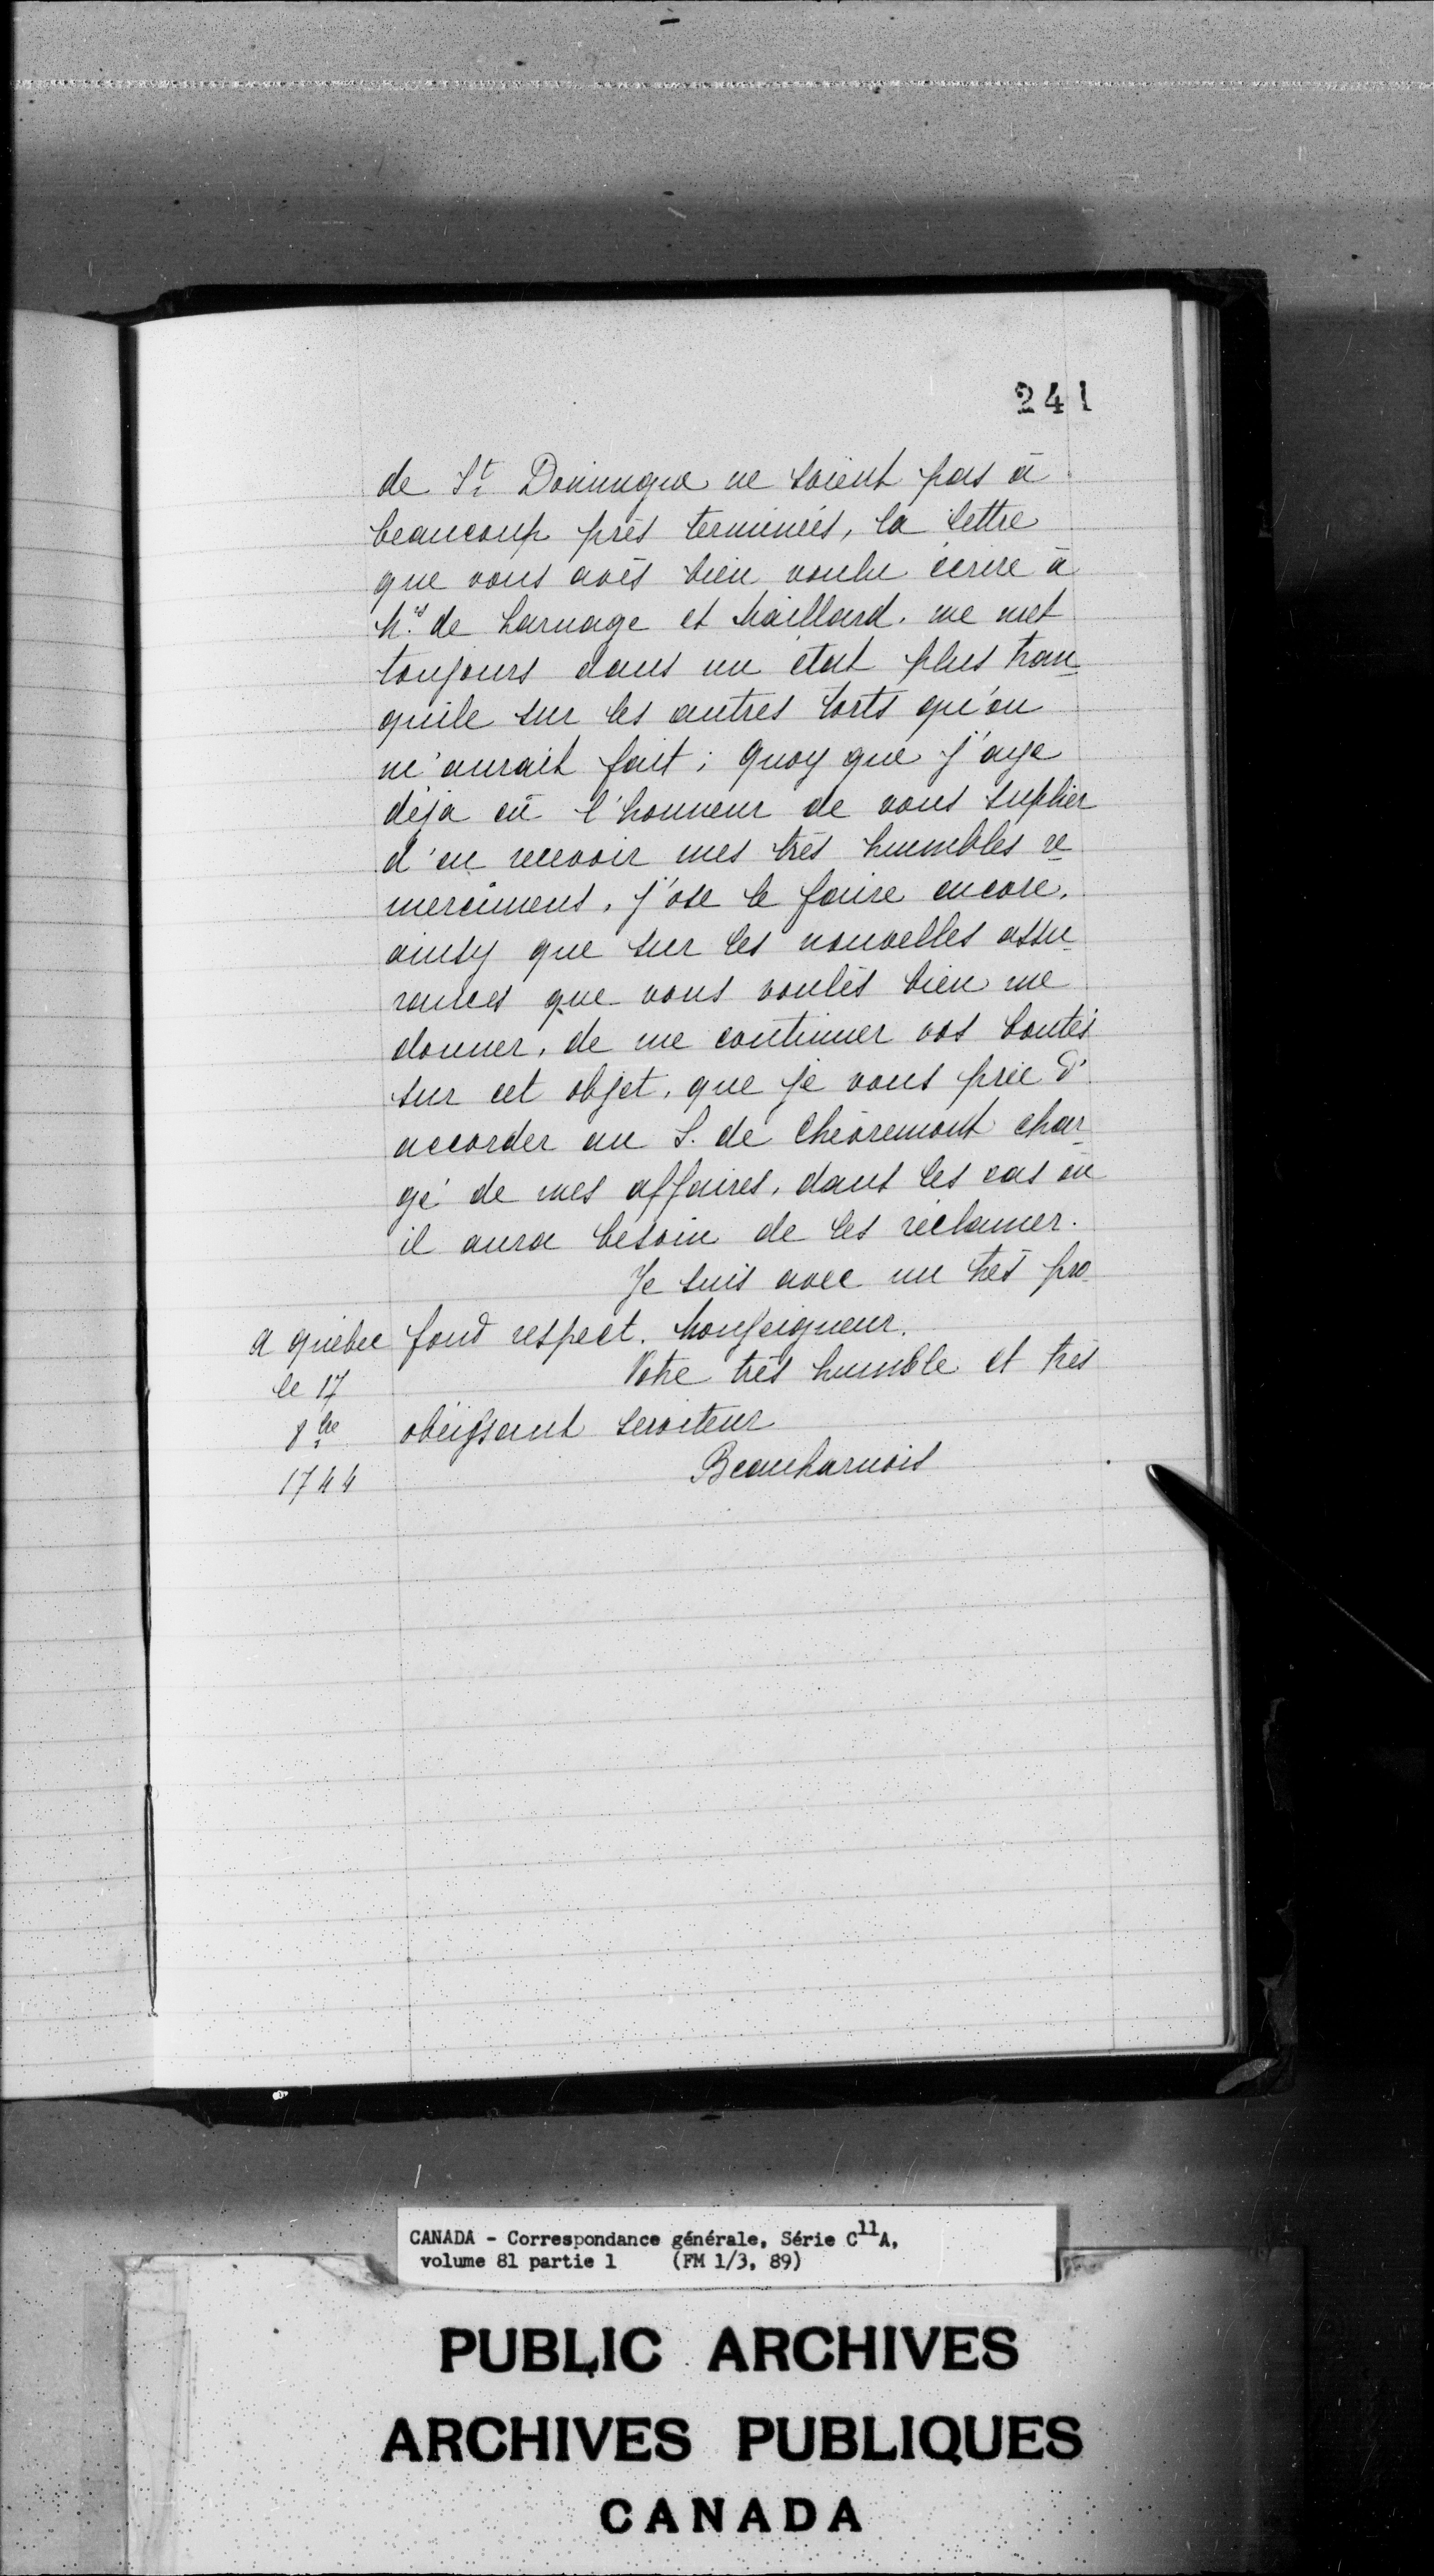 241
de St. Domingue ne soient pas à
beaucoup près terminées, la lettre
que vous avés bien voulu écrire à
M.rs de Larnage et Maillard, me met
toujours dans un état plus tran-
quile sur les autres torts qu'on
m'aurait fait ; quoy que j'aye
déja eû l'honneur de vous suplier
d'en recevoir mes très humbles re-
mercimens, j'ose le faire encore,
ainsy que sur les nouvelles assu-
rances que vous voulés bien me
donner, de me continuer vos bontés
sur cet objet, que je vous prie d'
accorder au S. de Chevremont char-
gé de mes affaires, dans les cas où
il aura besoin de les réclamer.
Je suis avec un très pro-
fond respect, Monseigneur,
Votre très humble et très
obéissant serviteur
Beauharnois
a quebec
le 17
8bre
1744
CANADA - Correspondance générale, Série C11A,
volume 81 partie 1 (FM 1/3, 89)
PUBLIC ARCHIVES
ARCHIVES PUBLIQUES
CANADA